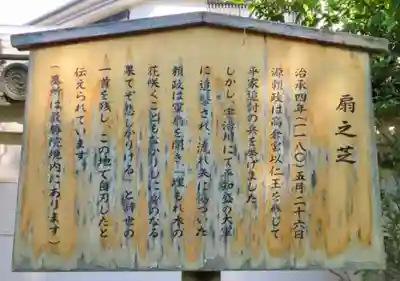 扇之芝
治承四年(一一八〇)五月二十六日
源頼政は高倉宮以仁王を奉じて
平家追討の兵を挙げました。
しかし、宇治川にて平知盛の大軍
に追撃され、流れ矢に傷ついた
頼政は軍扇を開き「埋もれ木の
花咲くことも なかりしに 身のなる
果てぞ 悲しかりける」と辞世の
一首を残し、この地で自刃したと
伝えられています。
(墓所は最勝院境内にあります)